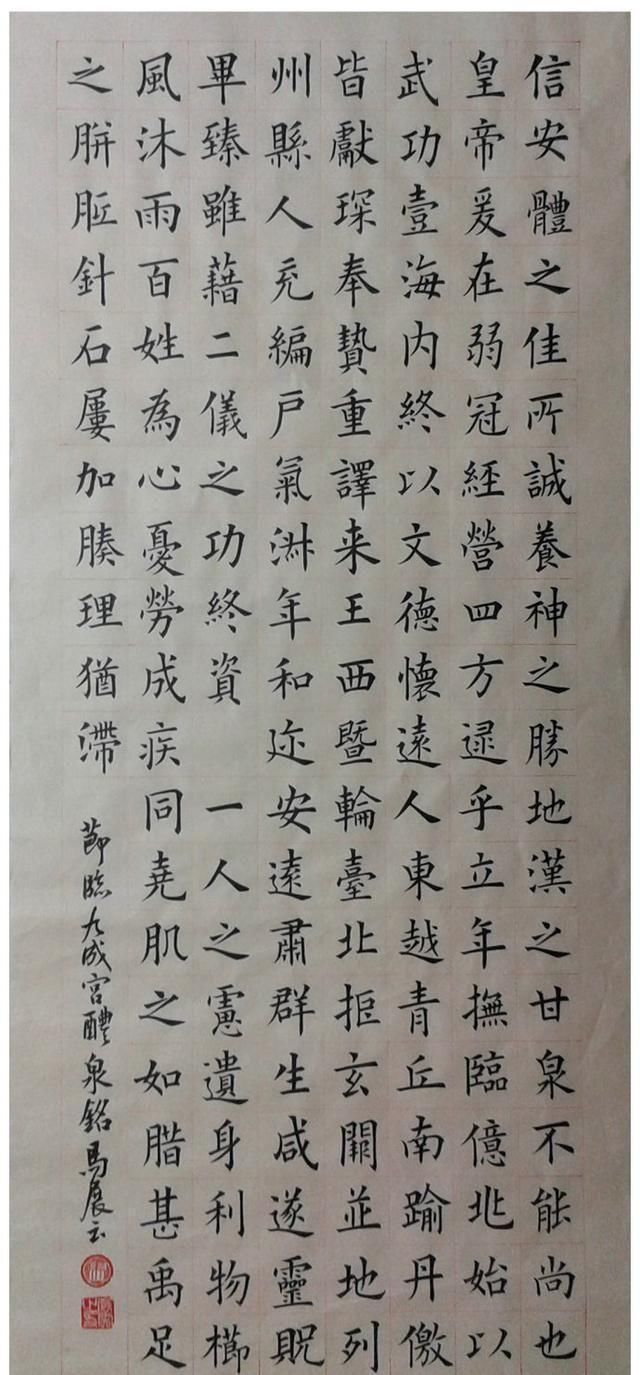 信安體之佳所誠養神之勝地漢之甘泉不能尚也
皇帝爰在弱冠經營四方逯乎立年撫臨億兆始以
武功壹海内終以文德懷遠人東越青丘南踰丹儌
皆獻琛奉贄重譯来王西暨輪臺北拒玄闕並地列
州縣人充編戸氣淋年和迩安遠肅群生咸遂靈貺
畢臻雖藉二儀之功終資一人之慮遺身利物櫛
風沐雨百姓為心憂勞成疾同堯肌之如腊甚禹足
之胼胝針石屢加腠理猶滯
節臨九成宫醴泉銘馬展云